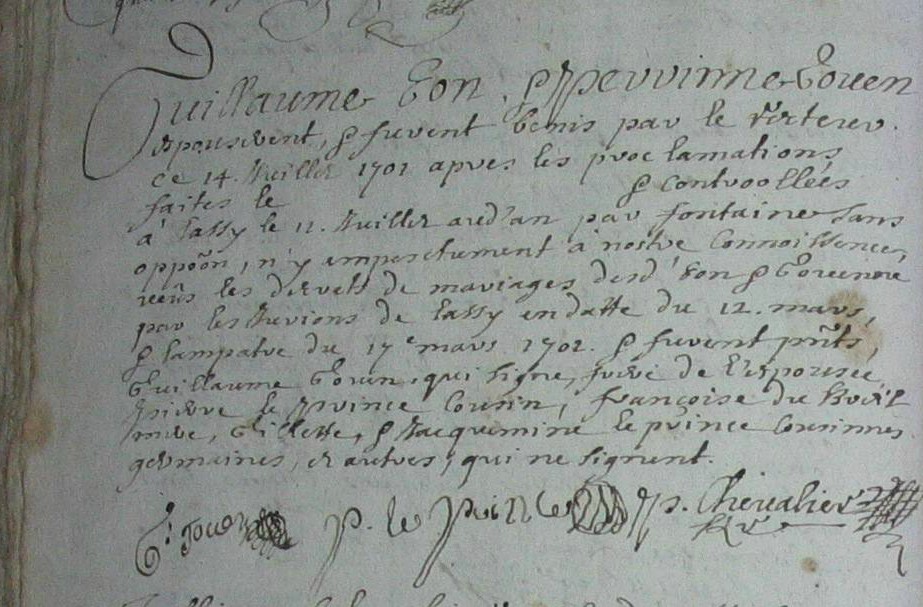 Guillaume Eon, & Perrinne Gouen
épouserent, & furent benis par le Recteur.
ce 14. Juillet 1702 apres les proclamations
faites le & controollées
à Lassy le 11. Juillet aud. an par fontaine sans
oppoõn, n'y empeschement à nostre connoissence,
veüs les decrets de mariages desd. Eon &
par les Jurions de Lassy en datte du 12. mars,
& du 17e mars 1702. & furent pnts,
Guillaume Gouen, qui signe, frere de L'epousée,
Pierre le Prince cousin, françoise du
mere, Gillette, & Jacquemine le prince cousinnes
germaines, et autres, qui ne signent.
G: Gouen p. le prince p. Chevalier
Rr